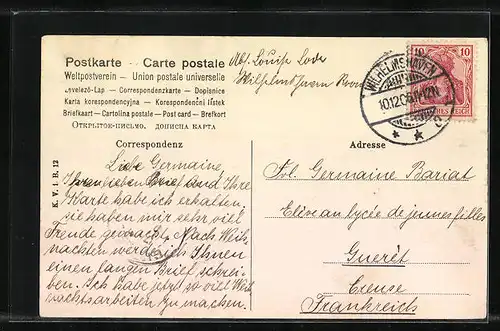 Postkarte - Carte postale
Weltpostverein - Union postale universelle
Levelező-Lap - Correspondenzkarte - Dopisnice
Karta korespondencyjna - Korespondenční lístek
Briefkaart - Cartolina postale - Post card - Brefkort
Открытое-письмо. дописна карта
Abs. Louise Lode
Wilhelmshaven
WILHELMSHAVEN
10.12.06.11-12N.
10
10
Correspondenz
Adresse
Liebe Germaine,
Ihren lieben Brief und Ihre
Karte habe ich erhalten.
sie haben mir sehr viel
Freude gemacht. Nach Weih-
nachten werde ich Ihnen
einen langen Brief schrei-
ben. Ich habe jetzt so viel Weih
nachtsarbeiten zu machen.
Frl. Germaine Bariat
Elise an lycée de jeunes filles
Guerét
Creuse
Frankreich
K. V. i. B. 12